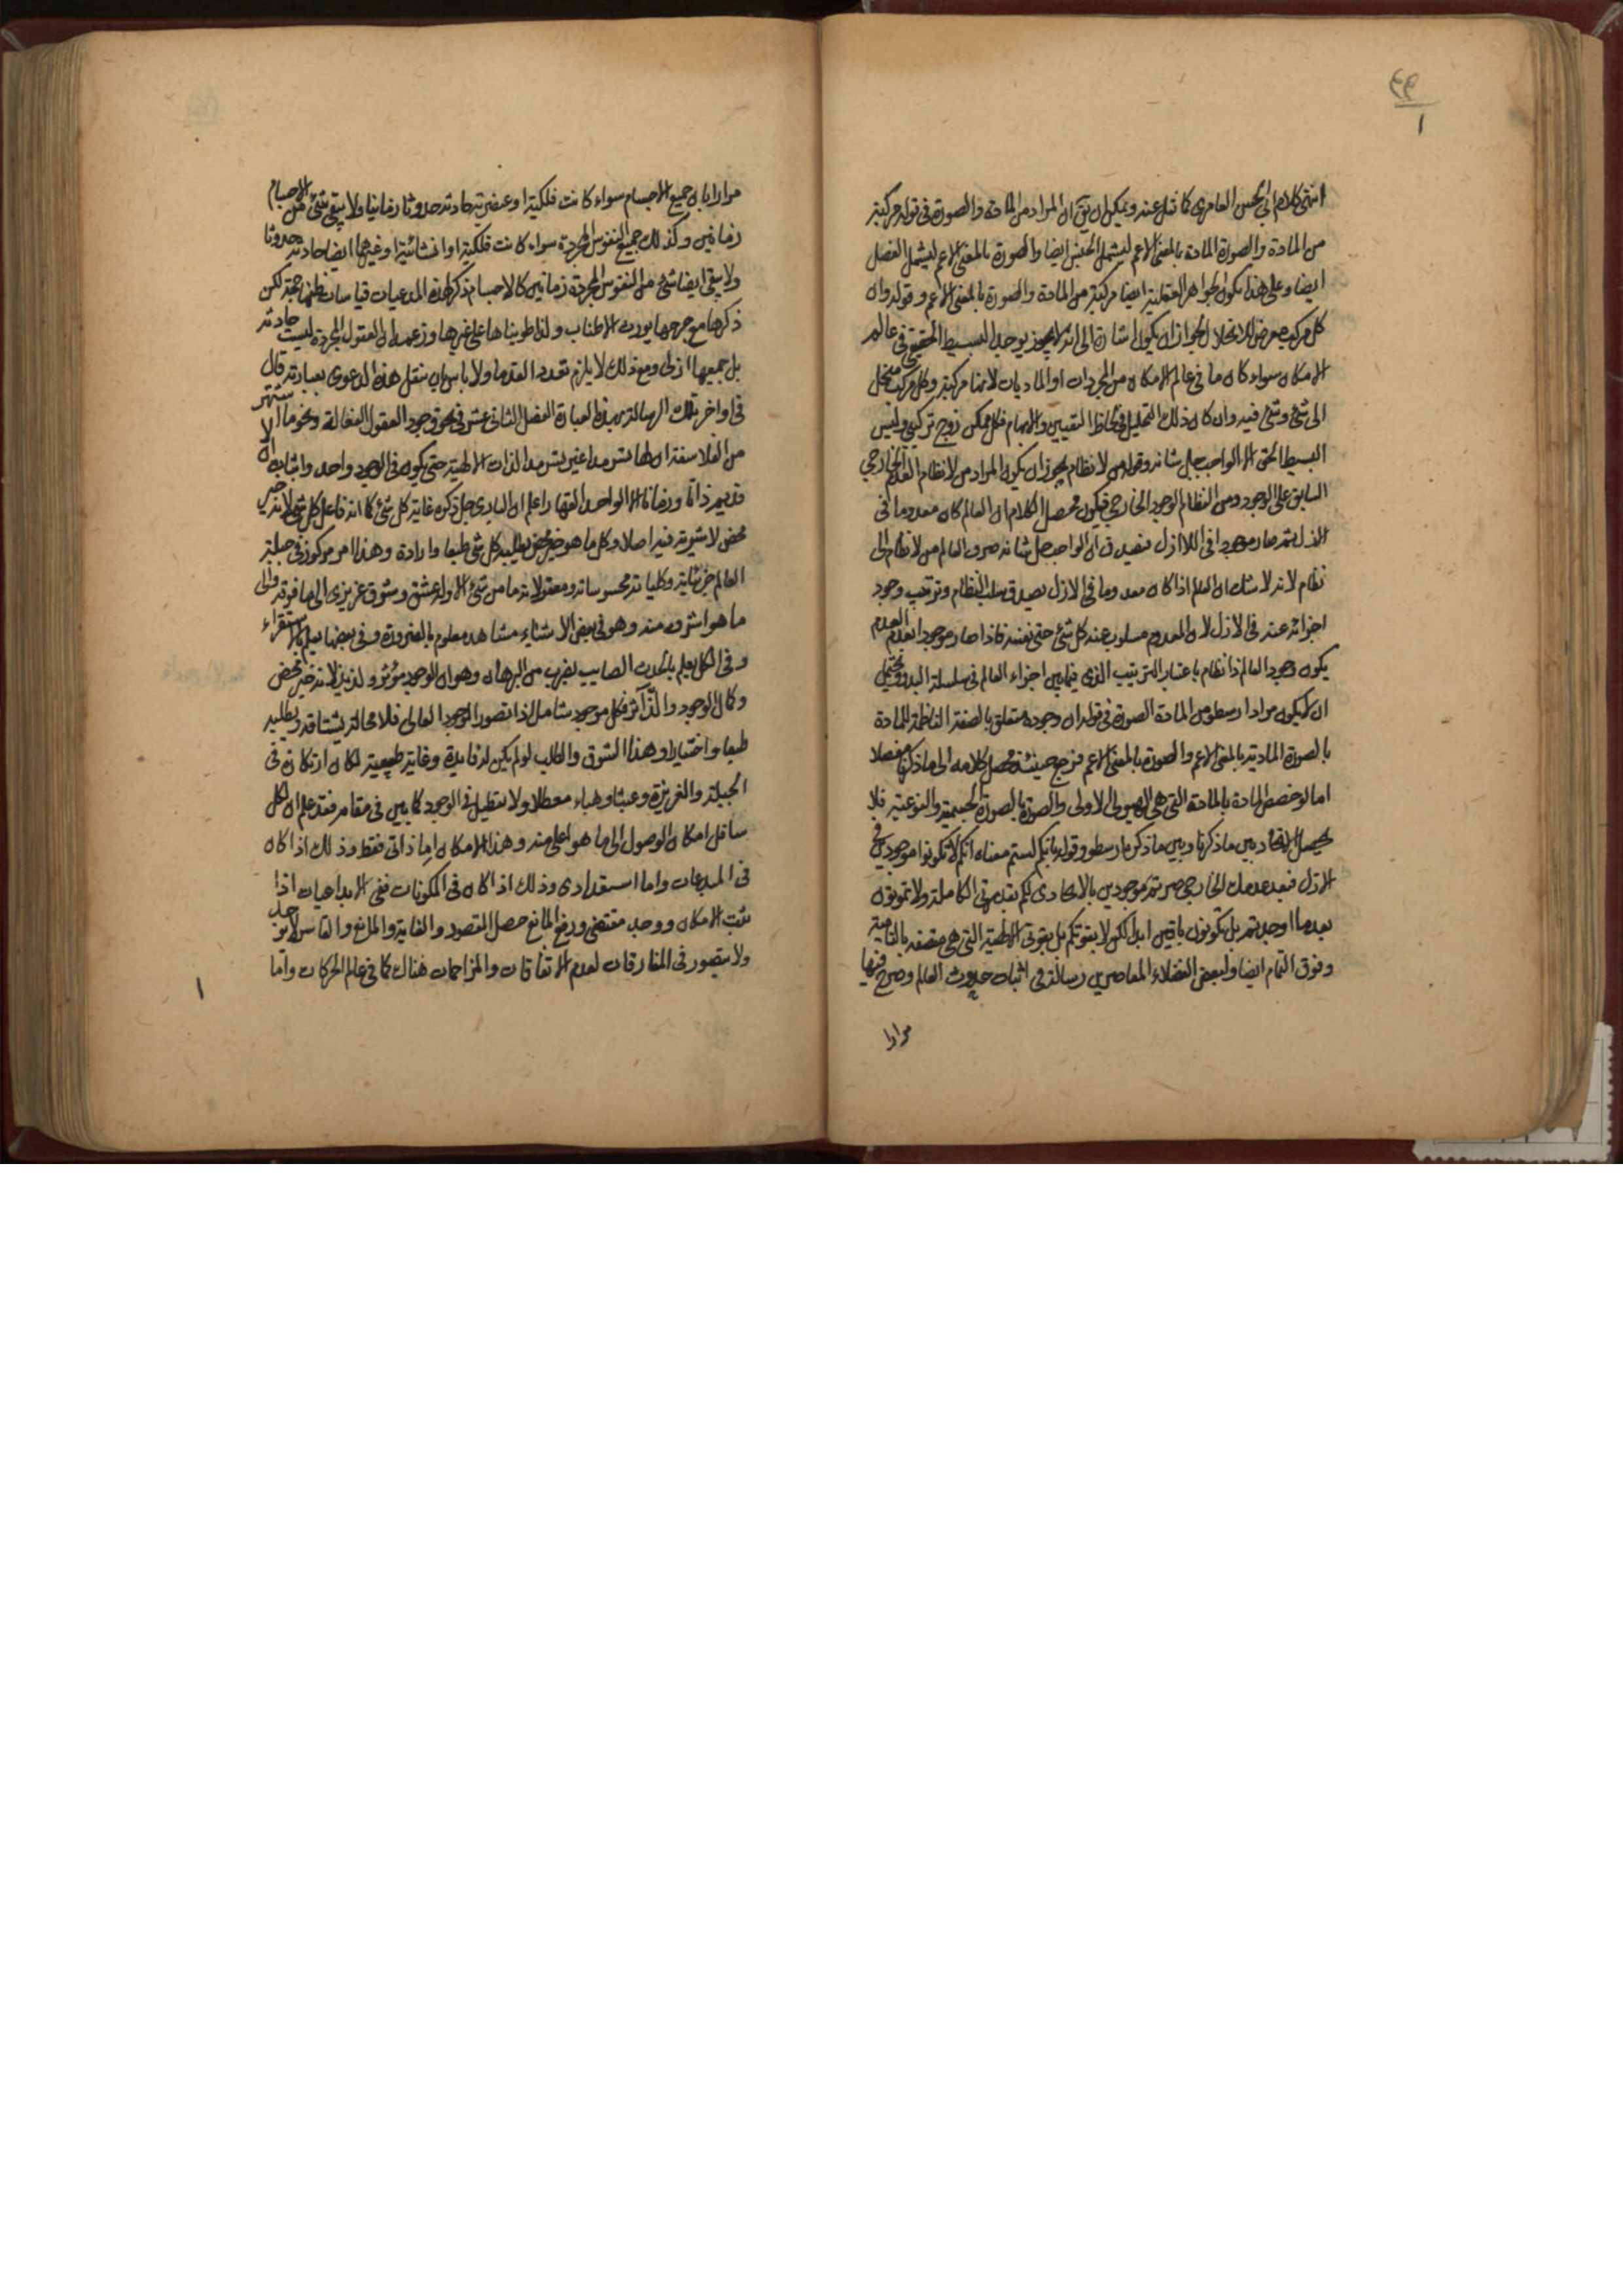 ٤٣
١
انتهى كلام ابى الحسن العامرى كما نقل عنه ويمكن ان يق ان المراد من المادة والصورة فى قوله مركبة
من المادة والصورة المادة بالمعنى الاعم ليشمل الجنس ايضا والصورة بالمعنى الاعم ليشمل الفصل
ايضا وعلى هذا يكون الجواهر العقلية ايضا مركبة من المادة والصورة بالمعنى الاعم وقوله وان
كل مركب معرض للانحلال الجواز ان يكون اشارة الى انه لا يجوز يوجد البسيط الحقيقى فى عالم
الامكان سواء كان ما فى عالم الامكان من المجردات او الماديات لانها مركبة وكل مركب منحل
الى شئ وشئ فيه وان كان ذلك التحليل فى لحاظ التعيين والابهام فكل ممكن زوج تركيبى وليس
البسيط الحق الا الواجب جل شانه وقوله من لا نظام يجوز ان يكون المراد من لا نظام العدم الخارجى
السابق على الوجود ومن النظام الوجود الخارجى فيكون محصل الكلام ان العالم كان معدوما فى
الازل ثم صار موجودا فى اللاازل فيصدق ان الواجب جل شانه صرف العالم من لا نظام الى
نظام لانه لا شك ان العالم اذا كان معدوما فى الازل يصدق سلب النظام وترتيب وجود
اجزائه عنه فى الازل لان المعدوم مسلوب عنه كل شئ حتى نفسه فاذا صار موجودا بعد العدم
يكون وجود العالم ذا نظام باعتبار الترتيب الذى فيما بين اجزاء العالم فى سلسلة البدو ويحتمل
ان يكون مراد ارسطو من المادة الصورة فى قوله ان وجوده متعلق بالصفة الناظمة للمادة
بالصورة المادية بالمعنى الاعم والصورة بالمعنى الاعم فرجع حينئذ محصل كلامه الى ما ذكرنا مفصلا
اما لو خصص المادة بالمادة التى هى الهيولى الاولى والصورة بالصورة الجسمية والنوعية فلا
يحصل الاتحاد بين ما ذكرنا وبين ما ذكره ارسطو وقوله بانكم لستم معناه انكم لا تكونوا موجودين فى
الازل فبعد عدمكم الخارجى صرتم موجودين بالايجادى لكم بقدرتى الكاملة ولا تموتون
بعد ما اوجدتم بل تكونون باقين ابدا لكن لا بقوتكم بل بقوتى الالهية التى هى متصفة بالتامية
وفوق التمام ايضا ولبعض الفضلاء المعاصرين رسالة فى اثبات حدوث العالم وصرح فيها
مرارا
مرارا بان جميع الاجسام سواء كانت فلكية او عنصرية حادثة حدوثا زمانيا ولا يبقى شئ من الاجسام
زمانين وكذلك جميع النفوس المجردة سواء كانت فلكية او انسانية او غيرها ايضا حادثة حدوثا
ولا يبقى ايضا شئ من النفوس المجردة زمانين كالاجسام وذكر لهذه المدعيات قياسات ظنها حجة لكن
ذكرها مع جرحها يورث الاطناب ولذا طويناها على غيرها وزعم ان العقول المجردة ليست حادثة
بل جميعها ازلى ومع ذلك لا يلزم تعدد القدما ولا باس بان ننقل هذه الدعوى بعبارته قال
فى اواخر تلك الرسالة بهذه العبارة الفصل الثانى عشر فى نحو وجود العقول الفعالة ونحو ما اشتهر
من الفلاسفة ان لها تسرمدا غير تسرمد الذات الالهية حتى يكون فى الوجود واحد واثبات ان لا
قديم ذاتا وزمانا الا الواحد القهار اعلم ان البارى جل ذكره غاية كل شئ كما انه فاعل كل شئ لانه خير
محض لا شرية فيه اصلا وكل ما هو خير محض يطلبه كل شئ طبعا وارادة وهذا امر مركوز فى جبلة
العالم جزئياته وكلياته محسوساته ومعقولاته ما من شئ الا وله عشق وشوق غريزى الى ما فوقه والى
ما هو اشرف منه وهو فى بعض الاشياء مشاهد معلوم بالضرورة وفى بعضها يعلم بالاستقراء
وفى الكل يعلم بالحدس الصايب بضرب من البرهان وهو ان الوجود مؤثر ولذيذ لانه خير محض
وكمال الوجود والذ آثر فكل موجود سافل اذا تصور الوجود العالى فلا محالة يشتاقه ويطلبه
طبعا واختيارا وهذا الشوق والطلب لو لم يكن له فايدة وغاية طبيعية لكان ارتكازه فى
الجبلة والغريزة وعبثا وهباء معطلا ولا تعطيل فى الوجود كما بين فى مقامه فقد علم ان لكل
سافل امكان الوصول الى ما هو اعلى منه وهذا الامكان اما ذاتى فقط وذلك اذا كان
فى المبدعات واما استعدادى وذلك اذا كان فى المكونات ففى الابداعيات اذا
ثبت الامكان ووجد مقتضى ورفع المانع حصل المقصود والغاية والمانع والقاسر لا يوجد
ولا يتصور فى المفارقات لعدم الاتفاقات والمزاحمات هناك كما فى عالم الحركات واما
١